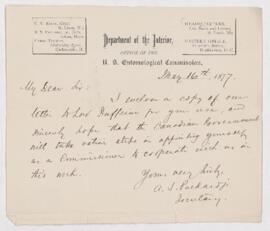 Department of the Interior,
OFFICE OF THE
U. S. Entomological Commission,
May 16th, 1877.
My Dear Sir:
I enclose a copy of our
letter to Lord Dufferin for your use, and
sincerely hope that the Canadian Government
will take active steps in appointing yourself
as a Commissioner to cooperate with us in
this work.
Yours very truly,
A. S. Packard Jr
Secretary.